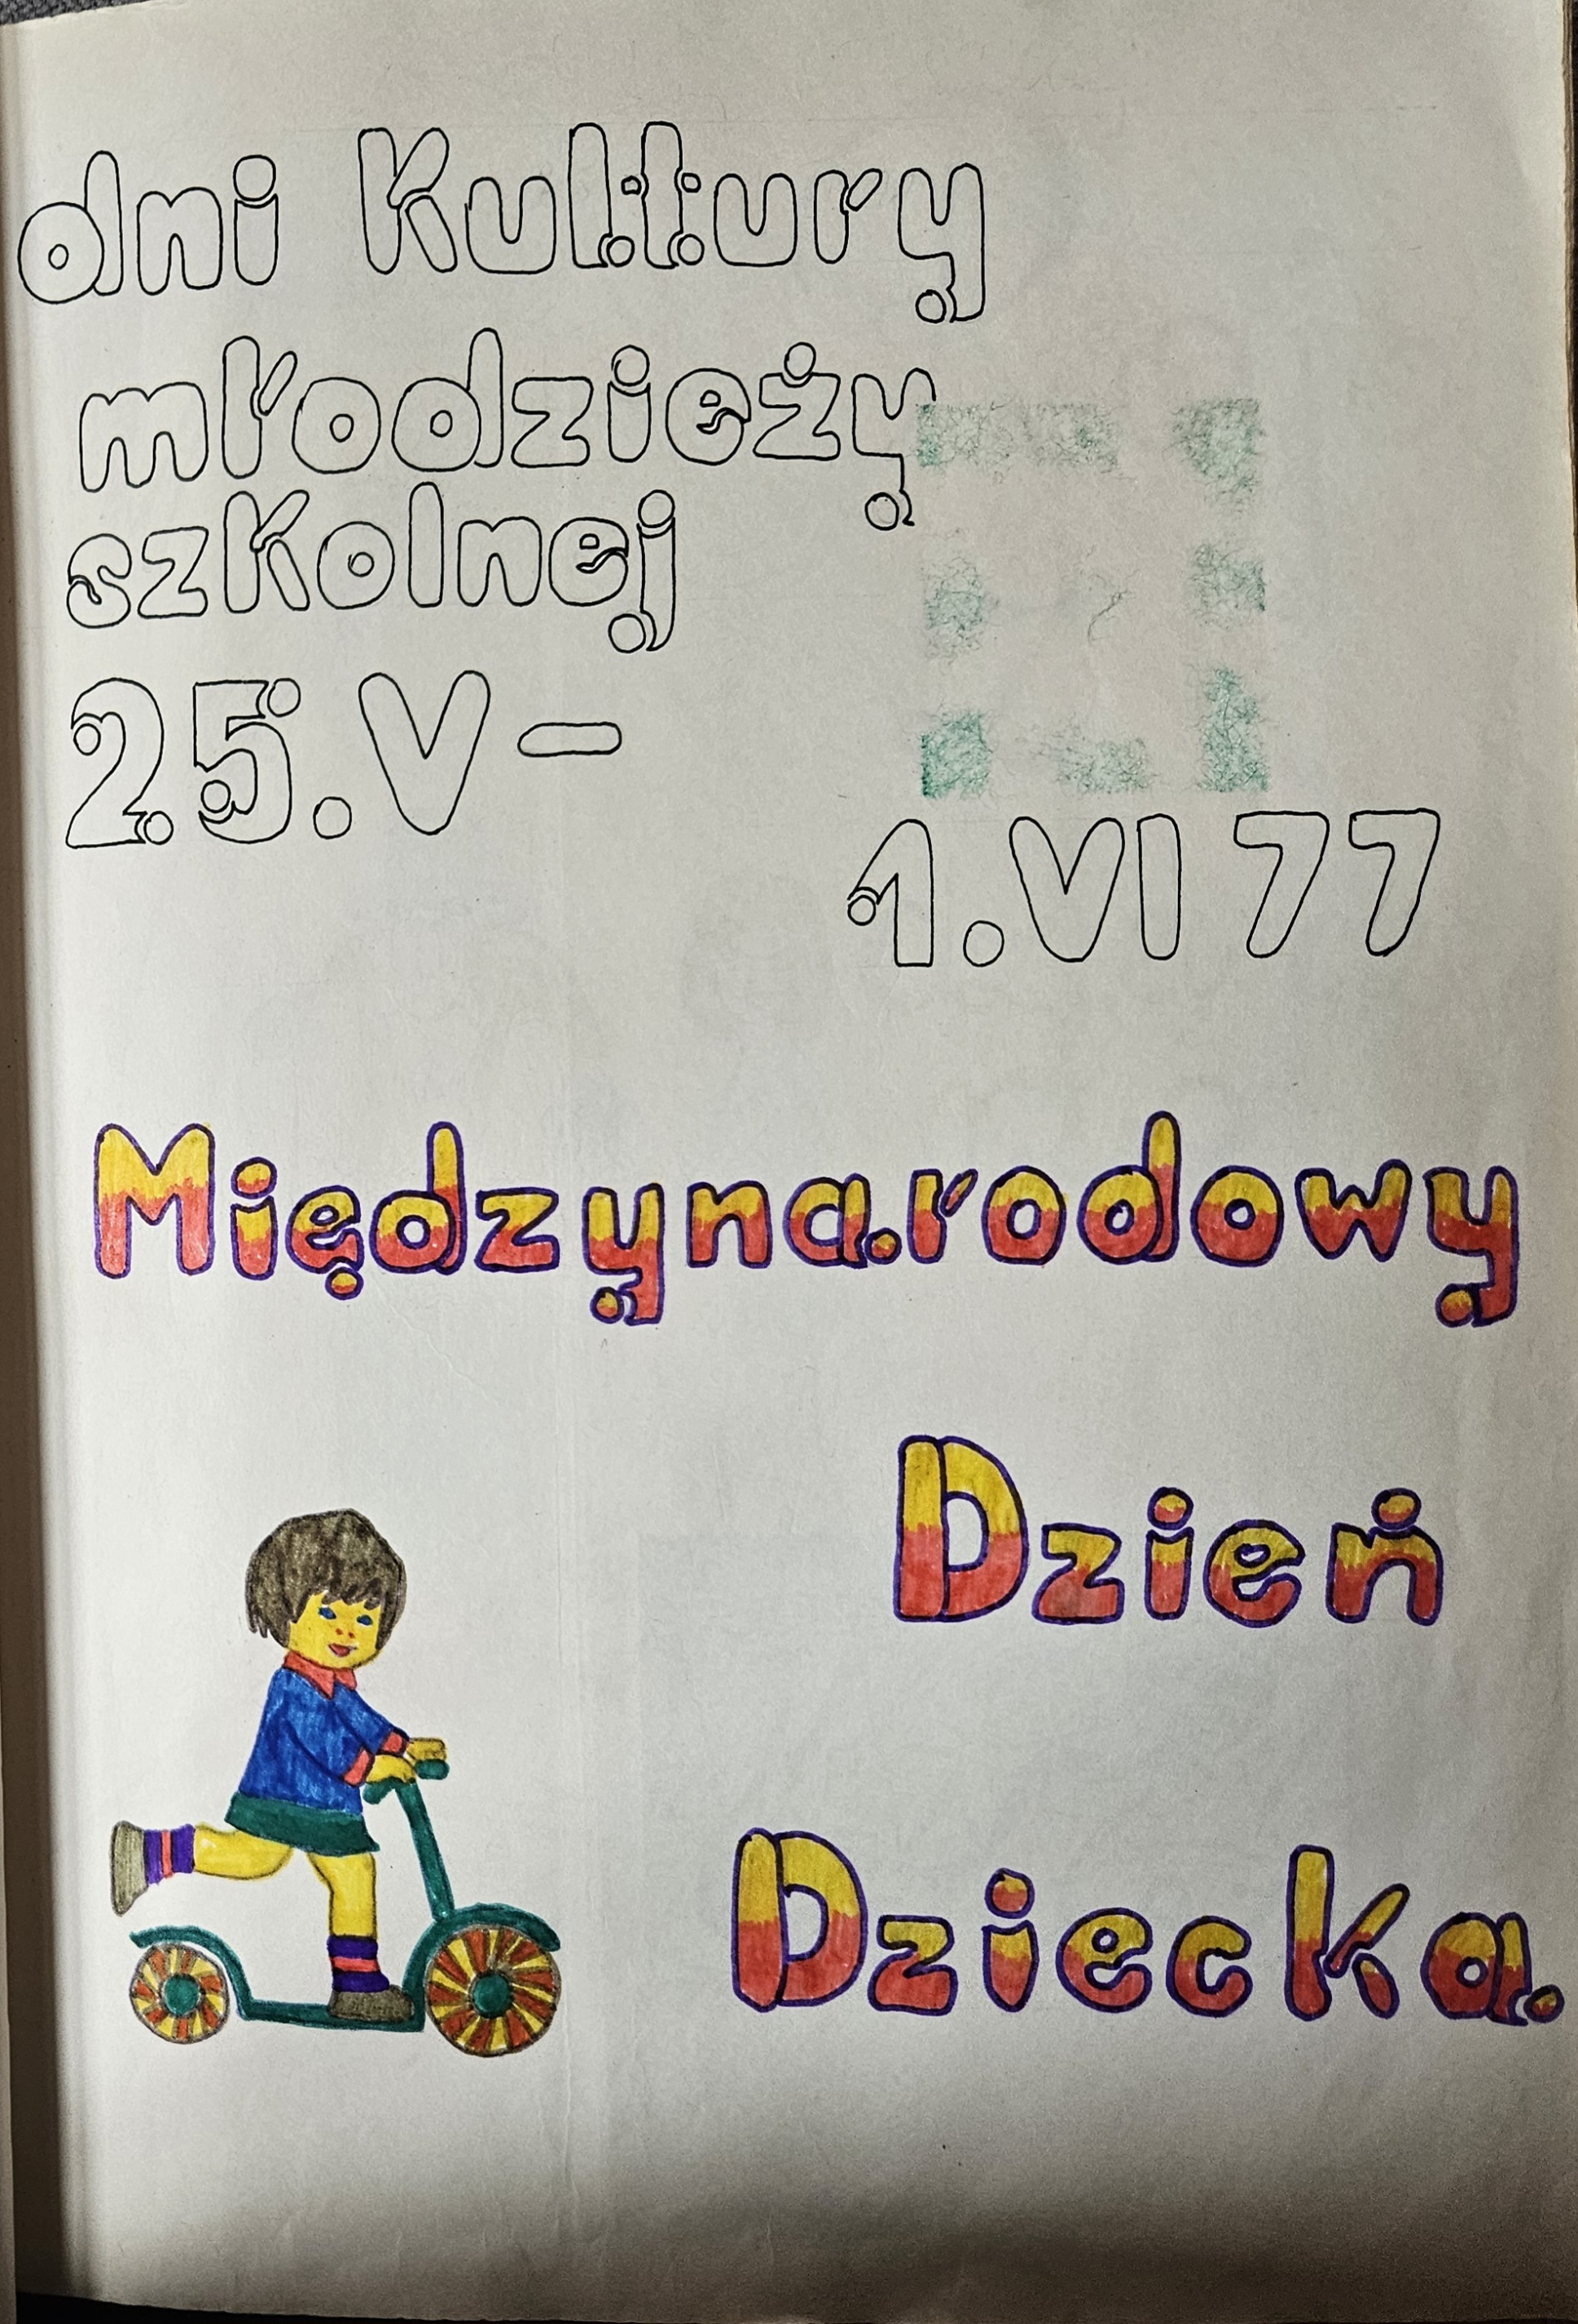 dni Kultury
młodzieży
szkolnej
25.V -
1.VI 77
Międzynarodowy
Dzień
Dziecka.